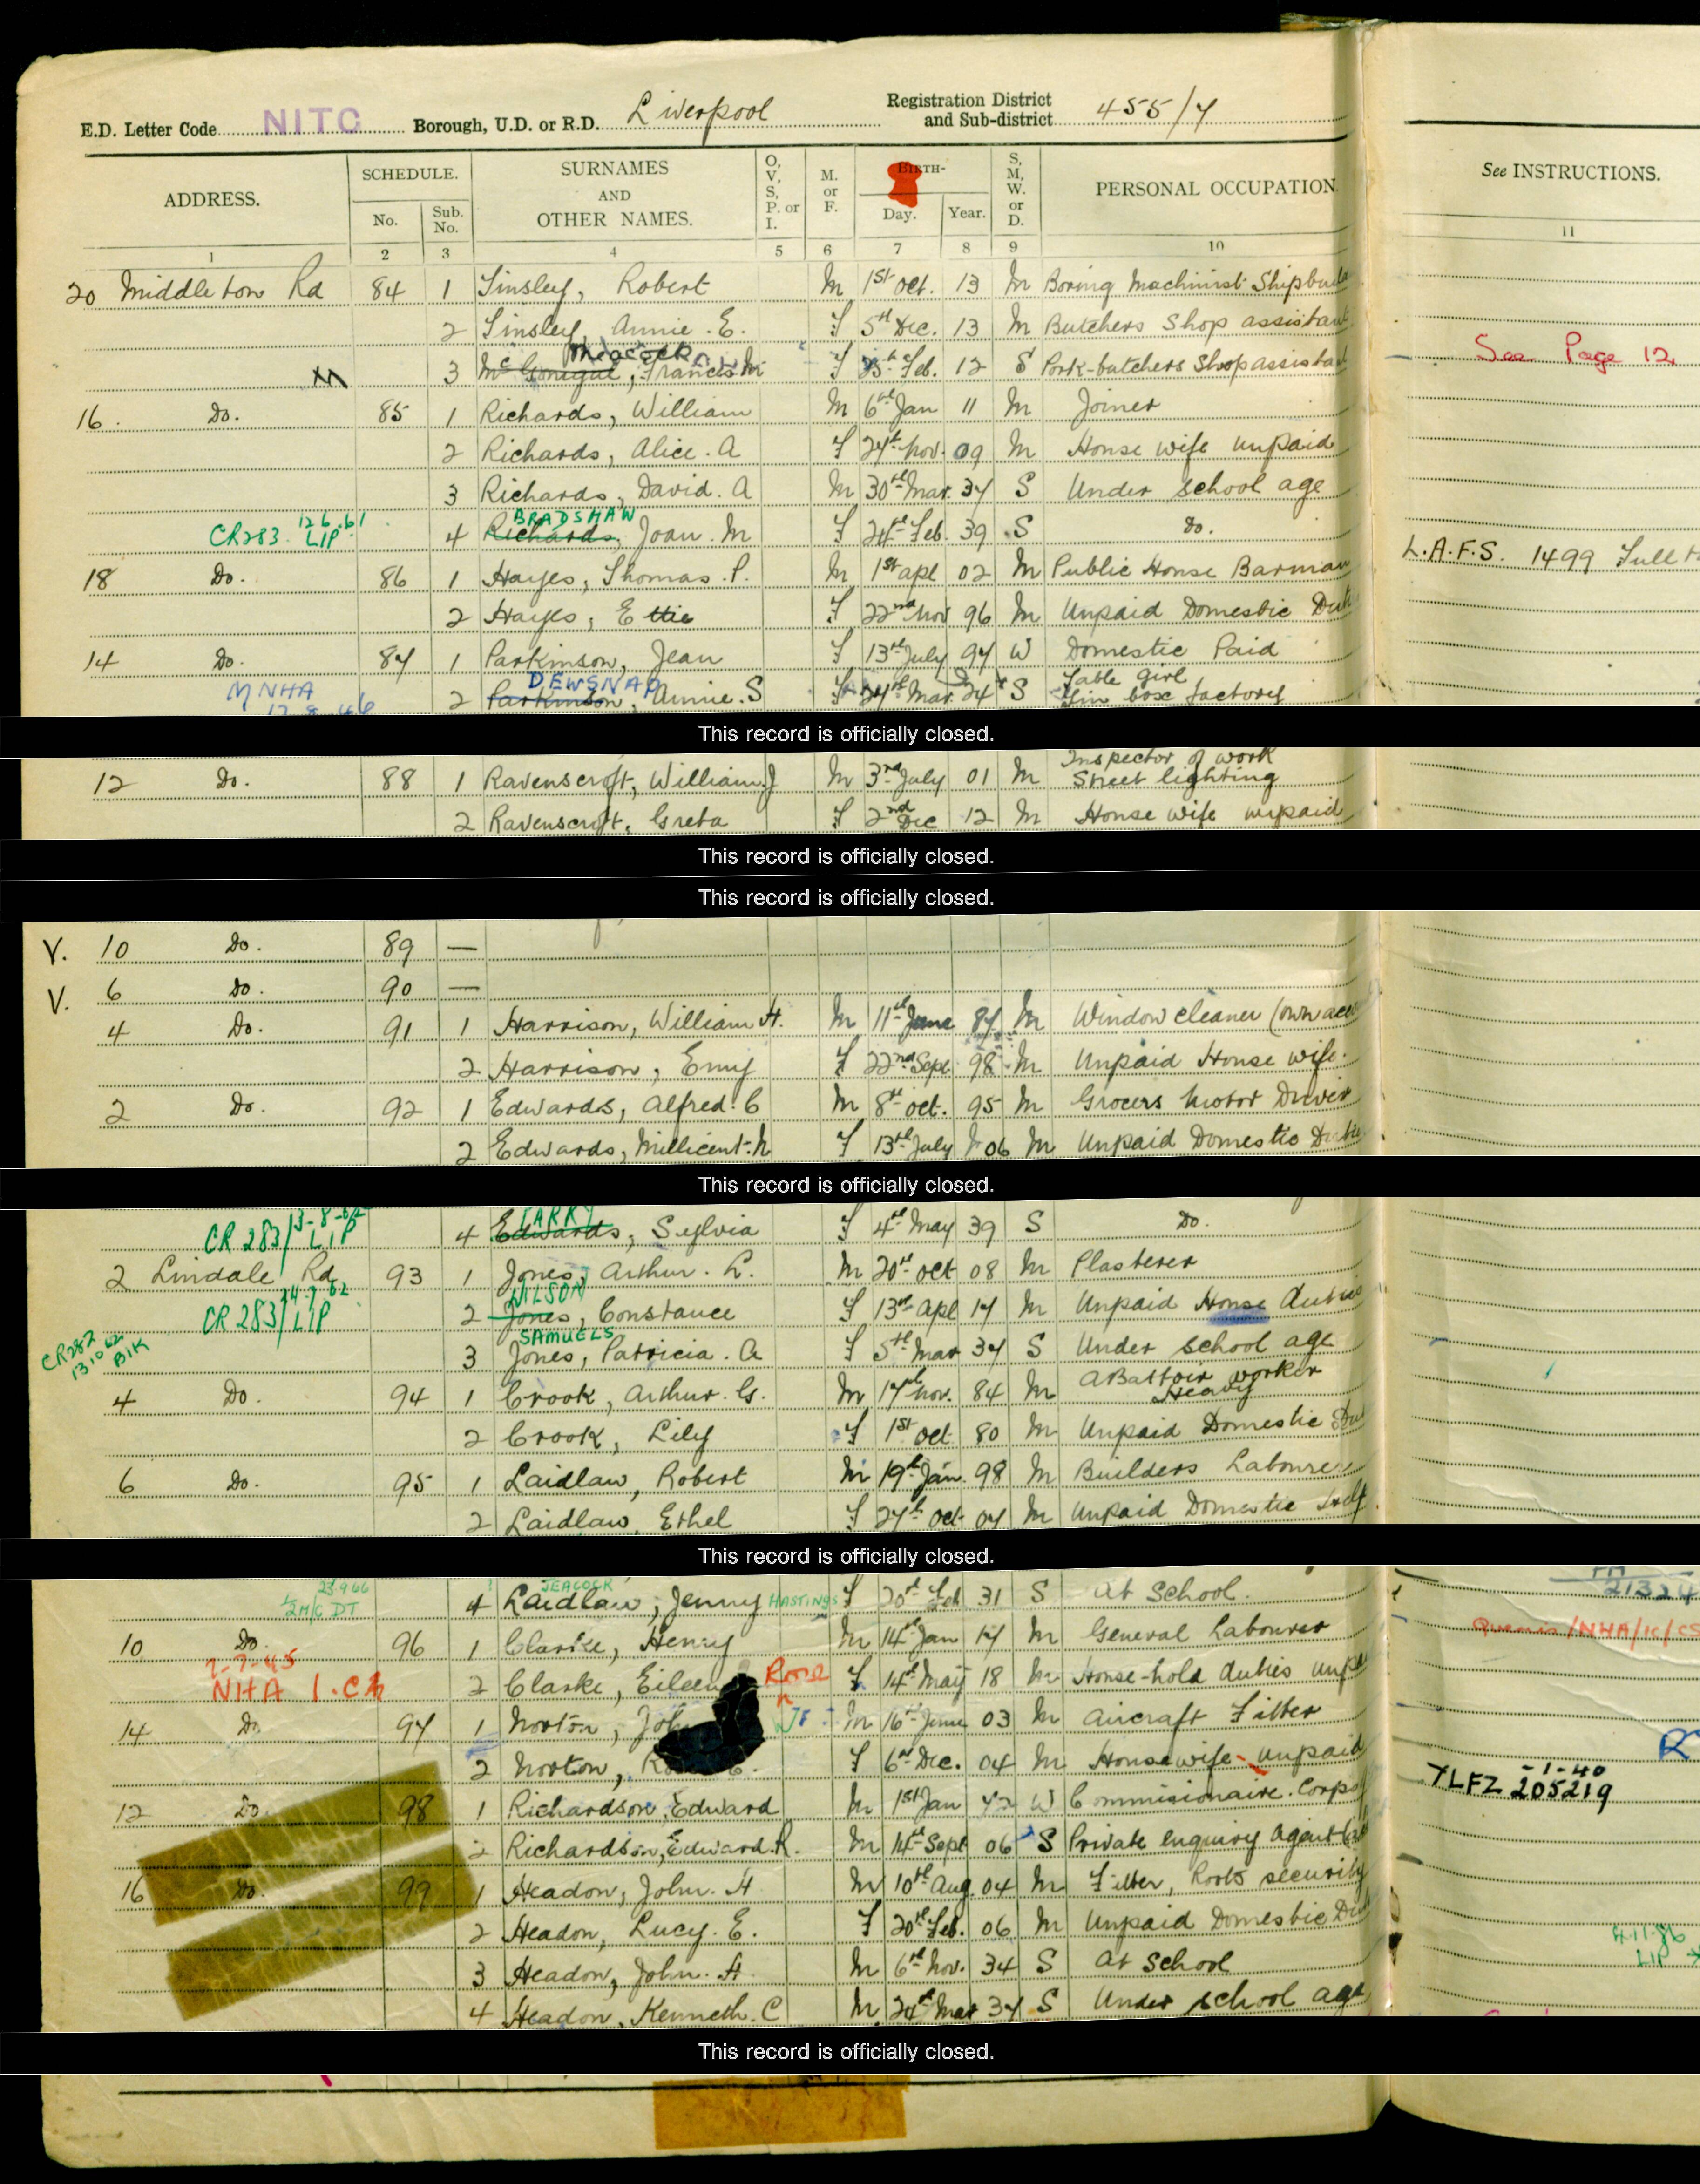 E.D. Letter Code NITC Borough, U.D. or R.D. Liverpool Registration District and Sub-district 455/7
ADDRESS. SCHEDULE. No. Sub. No. SURNAMES AND OTHER NAMES. O, V, S, P. or I. M. or F. BIRTH- Day. Year. S, M, W. or D. PERSONAL OCCUPATION. See INSTRUCTIONS.
1 2 3 4 5 6 7 8 9 10 11
20 Middleton Rd 84 1 Tinsley, Robert M 1st Oct. 13 M Boring Machinist
2 Tinsley, Annie. E. F 5th Dec. 13 M Butchers Shop assistant
Meacock
M 3 Francis M F Feb. 12 S Pork-butchers Shop assistant See Page 12.
16. Do. 85 1 Richards, William M 6th Jan 11 M Joiner
2 Richards, Alice. A F 24th Nov. 09 M House wife unpaid
3 Richards, David. A M 30th Mar. 37 S Under school age
BRADSHAW
CR283 12.6.61 LIP 4 Richards, Joan. M F 24th Feb. 39 S Do.
18 Do. 86 1 Hayes, Thomas. P. M 1st Apl 02 M Public House Barman L.A.F.S. 1499
2 Hayes, Ettie F 22nd Nov 96 M Unpaid Domestic
14 Do. 87 1 Parkinson, Jean F 13th July 97 W Domestic Paid
DEWSNAP Table Girl
M NHA 2 Parkinson, Annie. S F Mar. 24 S Tin box factory
This record is officially closed.
Inspector of work
12 Do. 88 1 Ravenscroft, William J M 3rd July 01 M Street lighting
2 Ravenscroft, Greta F 2nd Dec 12 M House wife unpaid
This record is officially closed.
This record is officially closed.
V. 10 Do. 89 —
V. 6 Do. 90 —
4 Do. 91 1 Harrison, William H. M 11th June 87 M Window cleaner (own
2 Harrison, Emy F 22nd Sept 98 M Unpaid House wife.
2 Do. 92 1 Edwards, Alfred. C M 8th Oct. 95 M Grocers Motor Driver
2 Edwards, Millicent. F 13th July 06 M Unpaid Domestic
This record is officially closed.
CR 283/LIP 4 Edwards, Sylvia F 4th May 39 S Do.
2 Lindale Rd 93 1 Jones, Arthur. L. M 20th Oct 08 M Plasterer
WILSON
CR 283/LIP 2 Jones, Constance F 13th Apl 14 M Unpaid House duties
SAMUELS
CR282 BIK 3 Jones, Patricia. A F 5th Mar 37 S Under school age
ABattoir worker
4 Do. 94 1 Crook, Arthur. G. M 17th Nov. 84 M Heavy
2 Crook, Lily F 1st Oct 80 M Unpaid Domestic
6 Do. 95 1 Laidlaw, Robert M 19th Jan. 98 M Builders Labourer
2 Laidlaw, Ethel F 27th Oct 07 M Unpaid Domestic
This record is officially closed.
23.9.66 JEACOCK
4 Laidlaw, Jenny HASTINGS F 20th Feb 31 S At School. 21324
10 Do. 96 1 Clarke, Henry M 14th Jan 14 M General Labourer
7-7-45 Rose
NHA 2 Clarke, Eileen F 14th May 18 M House-hold duties
14 Do 97 1 Norton, M 16th June 03 M Aircraft Fitter
2 Norton, F 6th Dec. 04 M Housewife unpaid
-1-40
YLFZ 205219
12 Do. 98 1 Richardson, Edward M 1st Jan 72 W Commisionaire. Corps
2 Richardson, Edward. R. M 14th Sept 06 S Private enquiry Agent
16 Do. 99 1 Headon, John. H M 10th Aug. 04 M Fitter, Roots security
2 Headon, Lucy. E. F 20th Feb. 06 M Unpaid Domestic
3 Headon, John. H M 6th Nov. 34 S At School
4 Headon, Kenneth. C M 24th Mar 37 S Under school age
This record is officially closed.